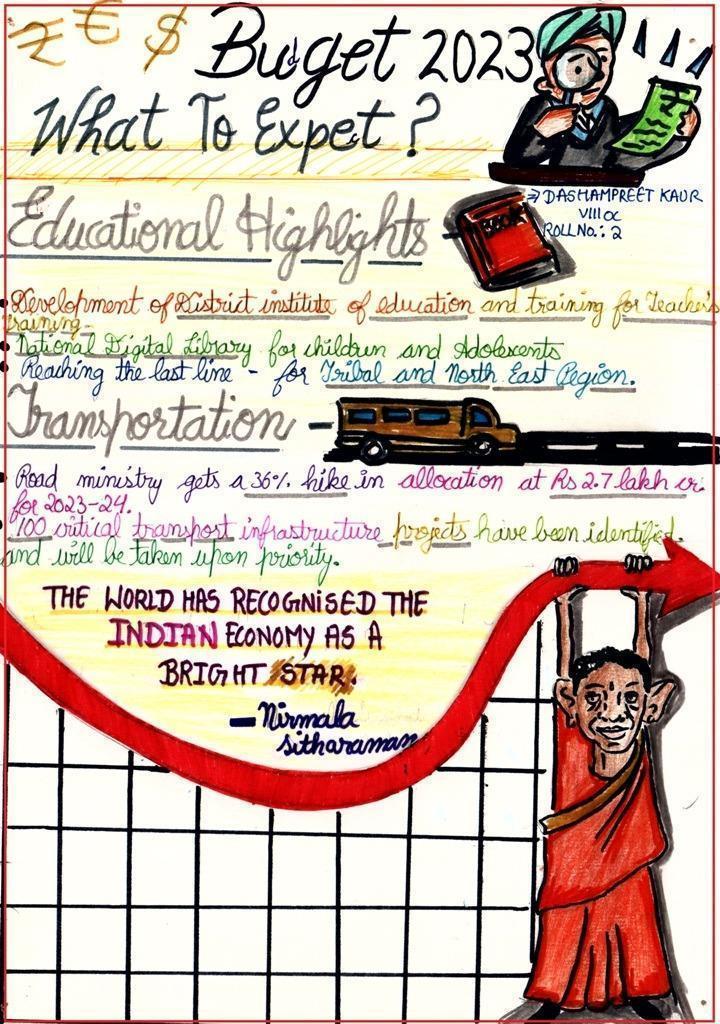 ₹ € $ Budget 2023
What To Expet ?
→ DASHAMPREET KAUR
VIII α
ROLL NO.: 2
Educational Highlights -
BOOK
• Development of District institute of education and training for Teacher's
training.
• National Digital Library for children and Adolescents
• Reaching the last line - for Tribal and North East Region.
Transportation -
• Road ministry gets a 36% hike in allocation at Rs 2.7 lakh cr.
for 2023-24.
• 100 critical transport infrastructure projects have been identified.
and will be taken upon priority.
THE WORLD HAS RECOGNISED THE
INDIAN ECONOMY AS A
BRIGHT STAR.
- Nirmala
Sitharaman